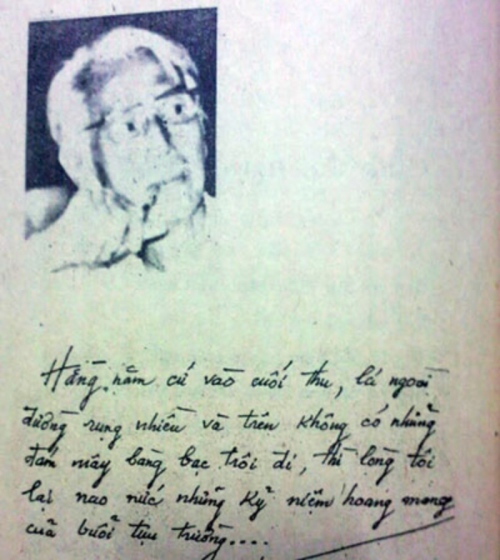 Hằng năm cứ vào cuối thu, lá ngoài
đường rụng nhiều và trên không có những
đám mây bàng bạc trôi đi, thì lòng tôi
lại nao nức những kỷ niệm hoang mang
của buổi tựu trường....